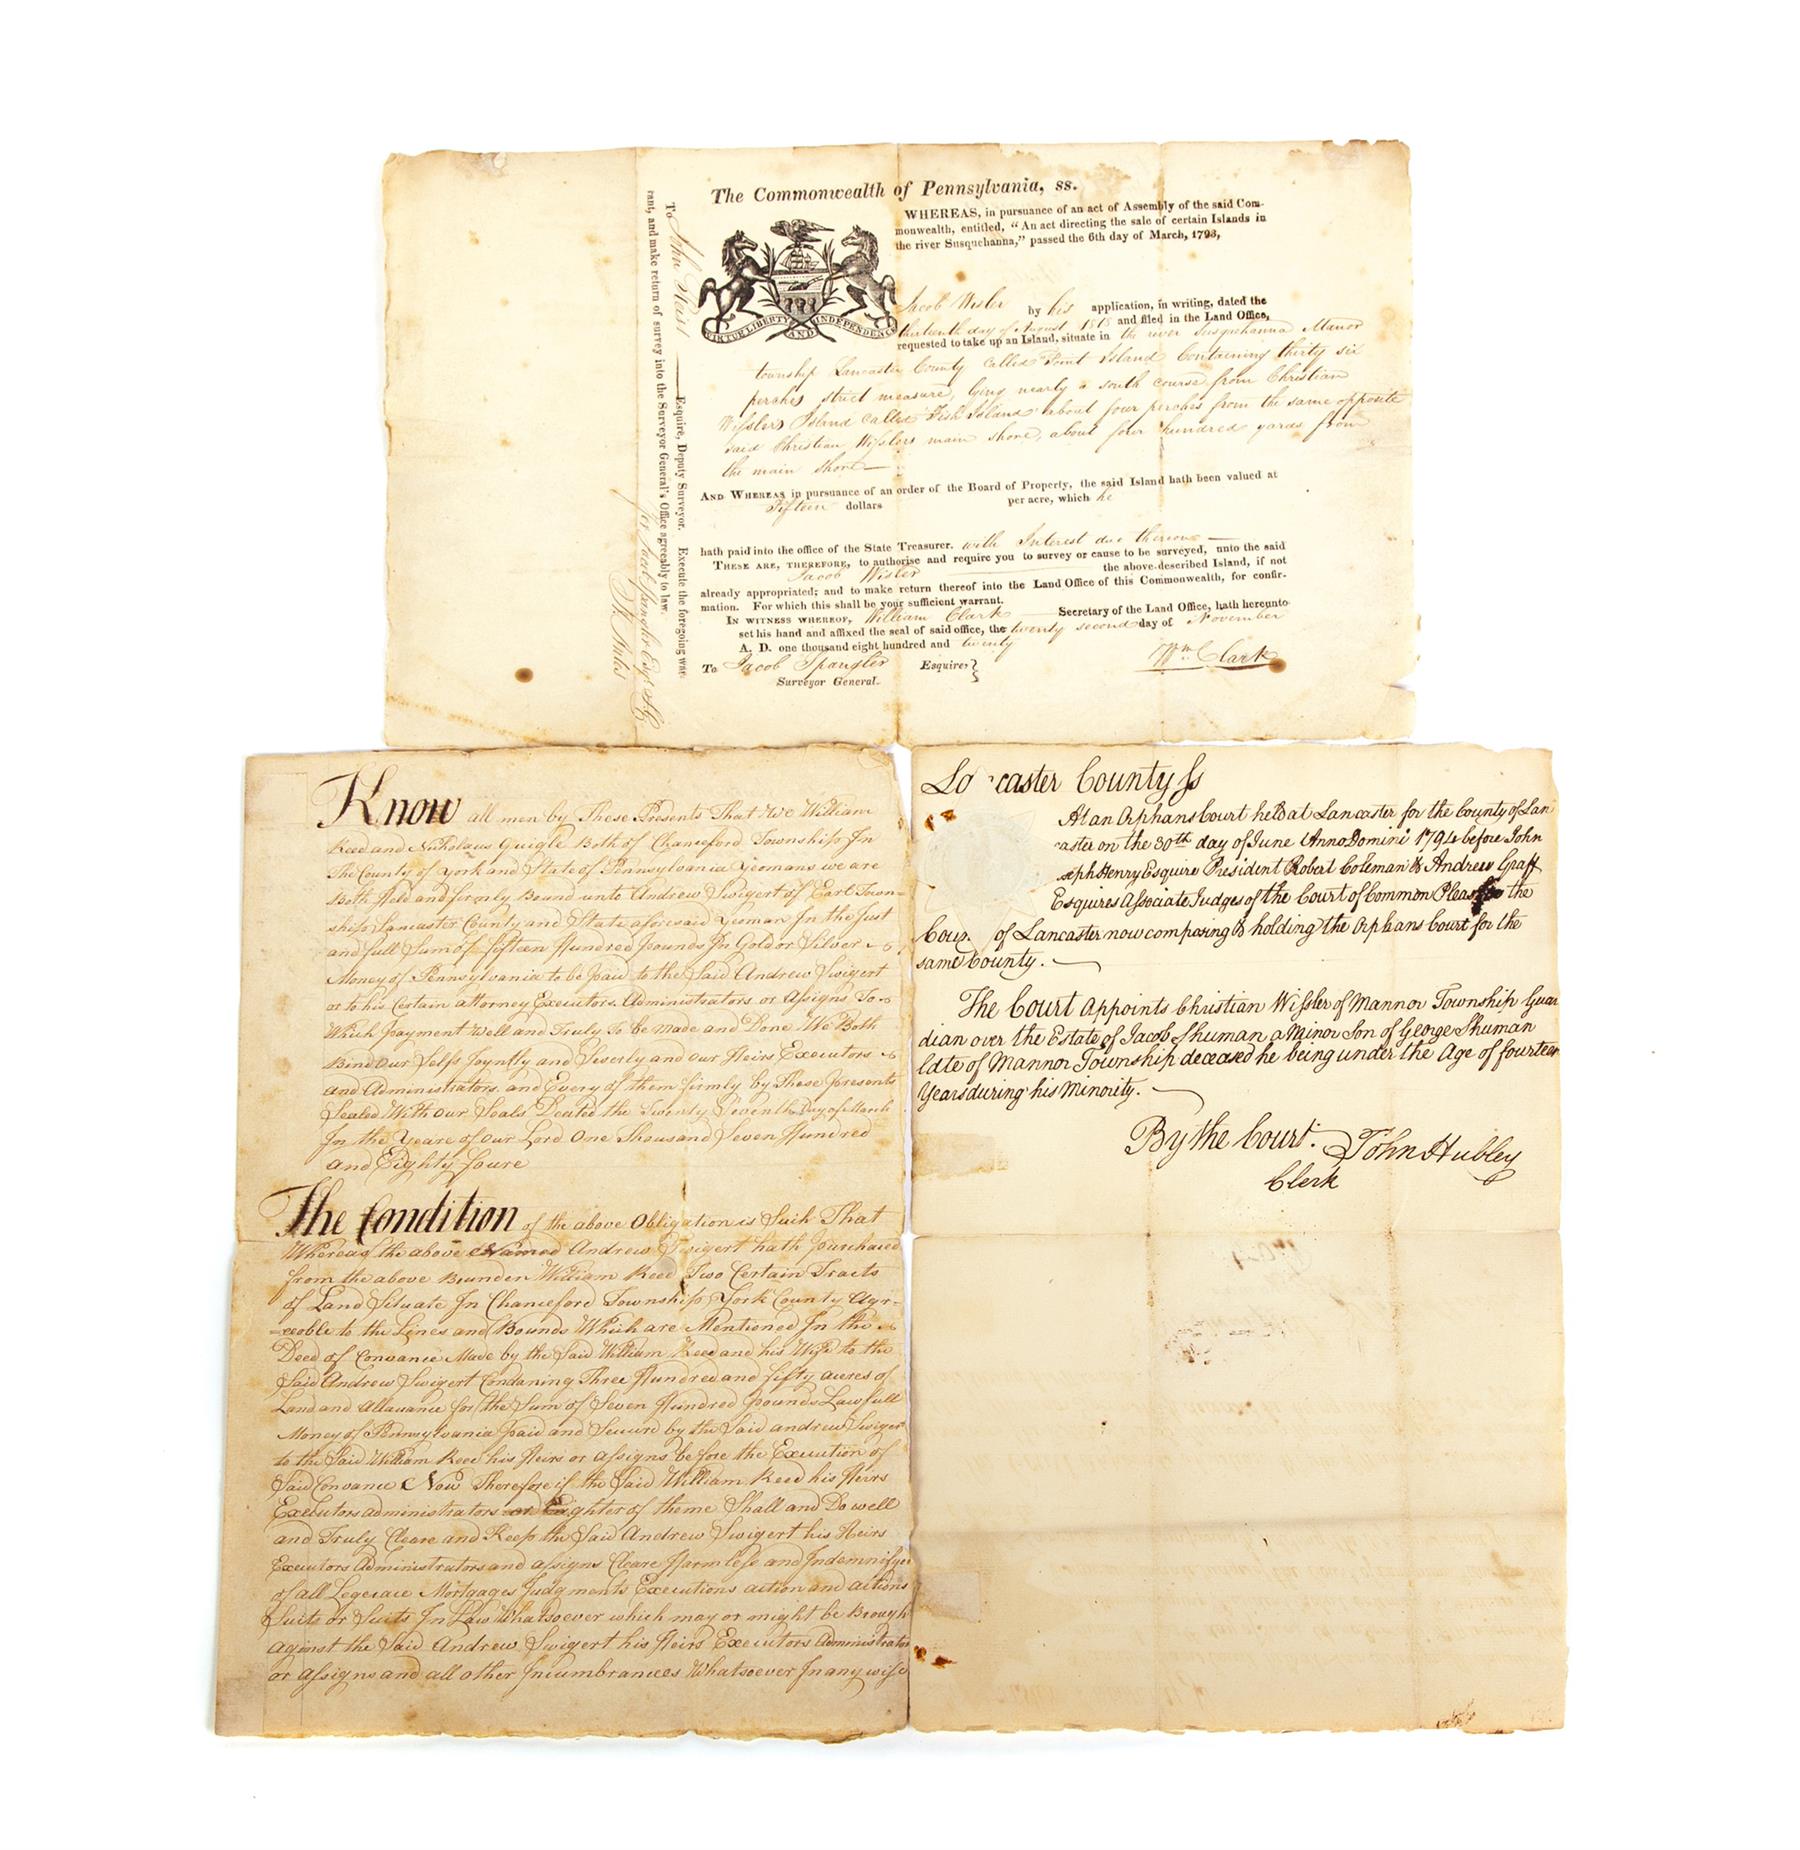 The Commonwealth of Pennsylvania, ss.
WHEREAS, in pursuance of an act of Assembly of the said Com-
monwealth, entitled, "An act directing the sale of certain Islands in
the river Susquehanna," passed the 6th day of March, 1793,
VIRTUE LIBERTY AND INDEPENDENCE
Jacob Wisler by his application, in writing, dated the
thirteenth day of August 1818 and filed in the Land Office,
requested to take up an Island, situate in the river Susquehanna Manor
township Lancaster County called Point Island Containing thirty six
perches strict measure, lying nearly a south course from Christian
Wisslers Island called Fish Island about four perches from the same opposite
said Christian Wisslers main shore, about four hundred yards from
the main shore —
AND WHEREAS in pursuance of an order of the Board of Property, the said Island hath been valued at
Fifteen dollars per acre, which he
hath paid into the office of the State Treasurer. with Interest due thereon —
THESE ARE, THEREFORE, to authorise and require you to survey or cause to be surveyed, unto the said
Jacob Wisler the above-described Island, if not
already appropriated; and to make return thereof into the Land Office of this Commonwealth, for confir-
mation. For which this shall be your sufficient warrant.
IN WITNESS WHEREOF, William Clark Secretary of the Land Office, hath hereunto
set his hand and affixed the seal of said office, the twenty second day of November
A. D. one thousand eight hundred and twenty
To Jacob Spangler Esquire,
Surveyor General.
Wm. Clark
To John Esquire, Deputy Surveyor. Execute the foregoing war-
rant, and make return of survey into the Surveyor General's Office agreeably to law.
for Jacob Spangler Esqr. S G
Know all men by These Presents That We William
Reed and Nicholaus Quigle Both of Chanceford Township In
The County of York and State of Pennsylvania Yeomans we are
Both Held and firmly Bound unto Andrew Swigert of Earl Town=
ship Lancaster County and State aforesaid Yeoman In the Just
and full Sum of fifteen Hundred pounds In Gold or Silver
Money of Pennsylvania to be paid to the Said Andrew Swigert
or to his Certain attorney Executors Administrators or Assigns To
Which payment Well and Truly To be Made and Done We Both
Bind Our Selfs Joyntly and Severly and our Heirs Executors
and Administrators and Every of them firmly by These presents
Sealed With Our Seals Deated the Twenty Seventh Day of March
In the Yeare of Our Lord One Thousand Seven Hundred
and Eighty foure
The Condition of the above Obligation is Such That
Whereas the above Named Andrew Swigert hath purchased
from the above Bunden William Reed Two Certain Tracts
of Land Situate In Chanceford Township York County Agr-
=eeoble to the Lines and Bounds Which are Mentioned In the
Deed of Convance Made by the Said William Reed and his Wife to the
Said Andrew Swigert Condaning Three Hundred and fifty acres of
Land and Allauance for the Sum of Seven Hundred pounds Lawfull
Money of Pennsylvania paid and Secure by the Said andrew Swiger
to the Said William Reed his Heirs or assigns before the Execution of
Said Convance Now Therefore if the Said William Reed his Heirs
Executors administrators or Eighter of theme Shall and Do well
and Truly Cleare and Keep the Said Andrew Swigert his Heirs
Executors Administrators and assigns Cleare Harmless and Indemnifye
of all Legeciace Mortgages Judgments Executions action and actions
Suits or Suits In Law Whatsoever which may or might be Brough
against the Said Andrew Swigert his Heirs Executors Administrators
or assigns and all other Incumbrances Whatsoever In any wise
Lo caster County Ss
At an Orphans Court held at Lancaster for the County of Lan
caster on the 30th day of June Anno Domini 1794 before John
seph Henry Esquire President Robert Coleman & Andrew Graff
Esquires Associate Judges of the Court of Common Pleas for the
Coun of Lancaster now composing & holding the Orphans Court for the
same County.
The Court appoints Christian Wissler of Mannor Township Guar
dian over the Estate of Jacob Shuman a Minor Son of George Shuman
late of Mannor Township deceased he being under the Age of fourteen
Years during his Minority.
By the Court: John Hubley
Clerk